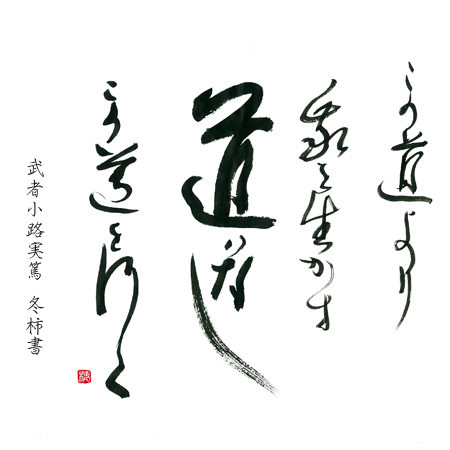 この道より
我を生かす
道なし
この道を行く
武者小路実篤 冬柿書